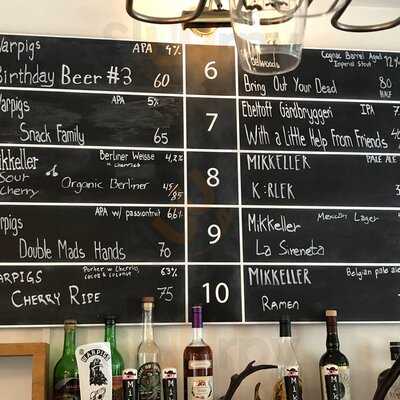 Warpigs APA 4%
Birthday Beer #3 60
Warpigs APA 5%
Snack Family 65
Mikkeller Berliner Weisse 4,2%
w cherries
Sour Cherry Organic Berliner 45/85
Warpigs APA w/ passionfruit 6.6%
Double Mads Hands 70
WARPIGS Porter w/ Cherries, 6.3%
cacao & coconut
CHERRY RIPE 75
6
7
8
9
10
Cognac Barrel Aged
Imperial Stout
Bring Out Your Dead 80
HALF
Ebeltoft Gårdbryggeri IPA
With a Little Help From Friends
MIKKELLER PALE ALE
K:RLEK
Mikkeller Mexican Lager
La Sireneta
MIKKELLER Belgian pale
RAMEN
WARPIGS